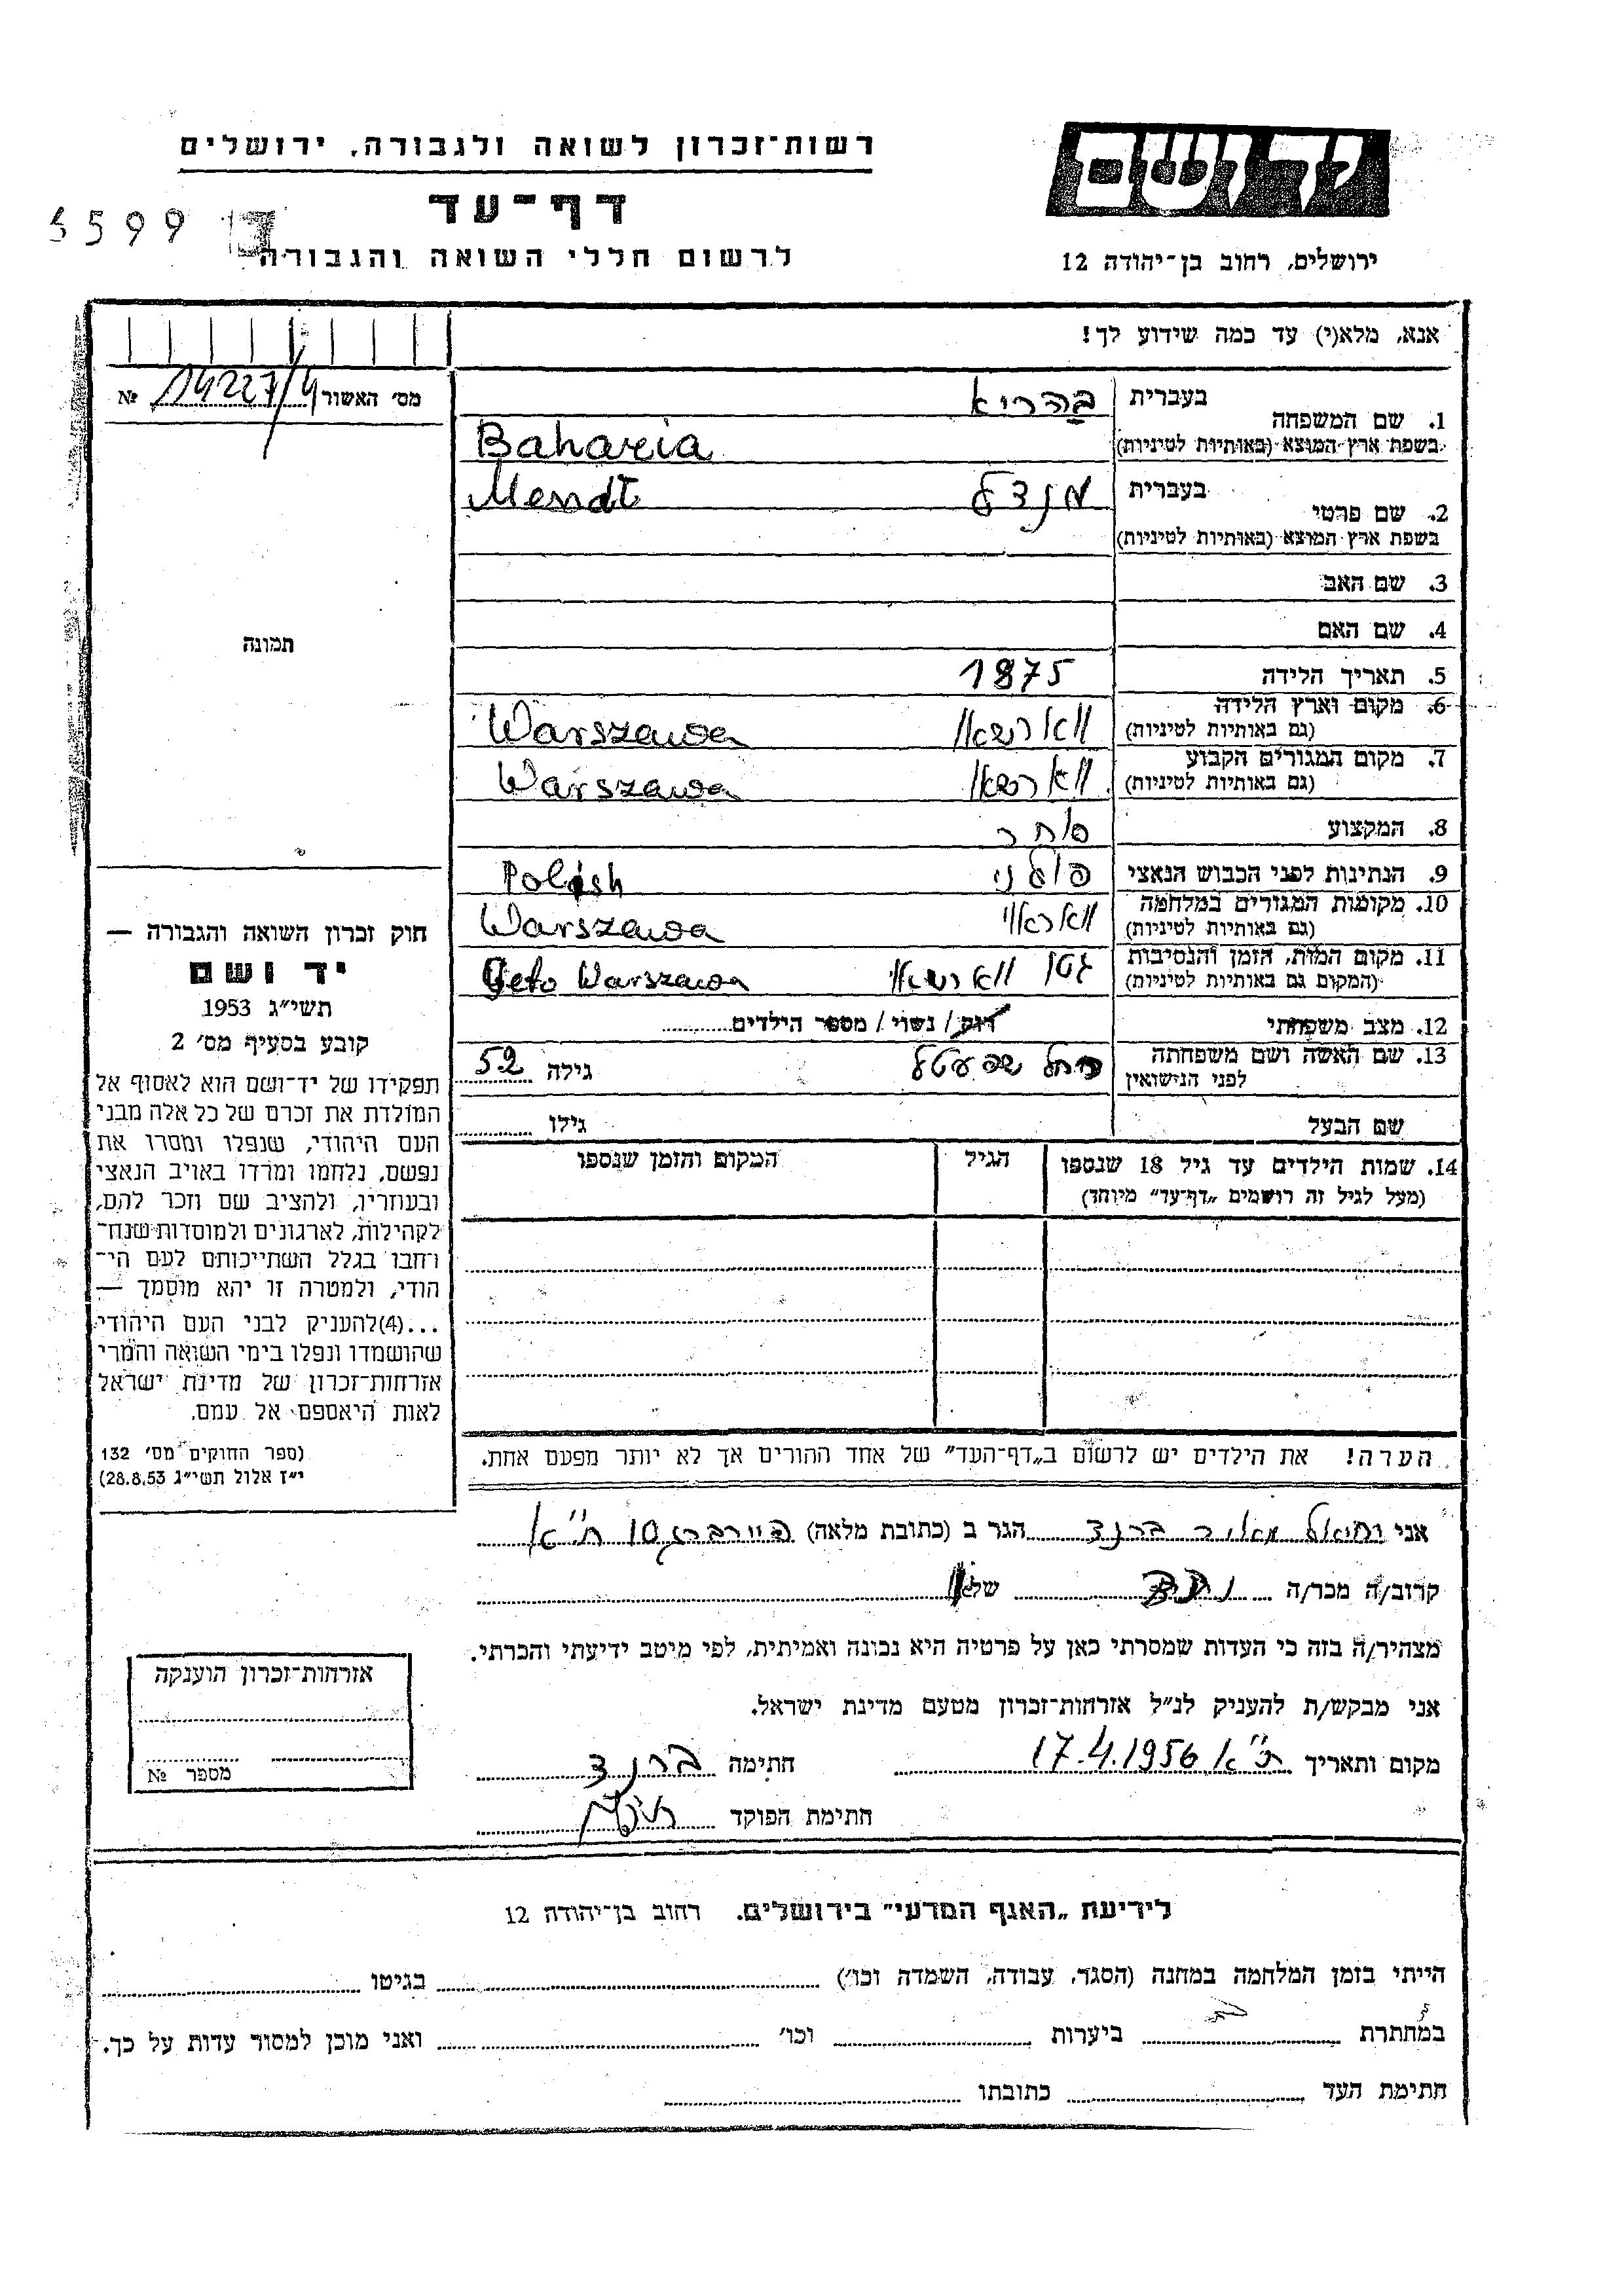 רשות־זכרון לשואה ולגבורה, ירושלים
דף־עד
לרשום חללי השואה והגבורה
יד ושם
ירושלים, רחוב בן־יהודה 12
5599
אנא, מלא(י) עד כמה שידוע לך!
מס׳ האשור № 14227/4
1. שם המשפחה
בעברית בהריא
בשפת ארץ המוצא (באותיות לטיניות) Baharia
2. שם פרטי
בעברית מנדל Mendl
בשפת ארץ המוצא (באותיות לטיניות)
3. שם האב
4. שם האם
5. תאריך הלידה 1875
6. מקום וארץ הלידה (גם באותיות לטיניות) ווארשאוו Warszawa
7. מקום המגורים הקבוע (גם באותיות לטיניות) ווארשאוו Warszawa
8. המקצוע סוחר
9. הנתינות לפני הכבוש הנאצי פולני Polish
10. מקומות המגורים במלחמה (גם באותיות לטיניות) Warszawa
11. מקום המות, הזמן והנסיבות (המקום גם באותיות לטיניות) גטו ווארשאוו Geto Warszawa
12. מצב משפחתי רוק / נשוי / מספר הילדים
13. שם האשה ושם משפחתה לפני הנישואין רחל גילה 52
שם הבעל גילו
14. שמות הילדים עד גיל 18 שנספו
(מעל לגיל זה רושמים „דף־עד” מיוחד)
הגיל
המקום והזמן שנספו
תמונה
חוק זכרון השואה והגבורה —
יד ושם
תשי״ג 1953
קובע בסעיף מס׳ 2
תפקידו של יד־ושם הוא לאסוף אל
המולדת את זכרם של כל אלה מבני
העם היהודי, שנפלו ומסרו את
נפשם, נלחמו ומרדו באויב הנאצי
ובעוזריו, ולהציב שם וזכר להם,
לקהילות, לארגונים ולמוסדות שנח־
רחבו בגלל השתייכותם לעם הי־
הודי, ולמטרה זו יהא מוסמך —
...(4)להעניק לבני העם היהודי
שהושמדו ונפלו בימי השואה והמרי
אזרחות־זכרון של מדינת ישראל
לאות היאספם אל עמם.
(ספר החוקים מס׳ 132
י״ז אלול תשי״ג 28.8.53)
הערה! את הילדים יש לרשום ב„דף־העד” של אחד ההורים אך לא יותר מפעם אחת.
אני יחיאל מאיר ברנד הגר ב (כתובת מלאה) 10 ת״א
קרוב/ה מכר/ה נכד של
מצהיר/ה בזה כי העדות שמסרתי כאן על פרטיה היא נכונה ואמיתית, לפי מיטב ידיעתי והכרתי.
אני מבקש/ת להעניק לנ״ל אזרחות־זכרון מטעם מדינת ישראל.
מקום ותאריך ת״א 17.4.1956 חתימה ברנד
חתימת הפוקד
אזרחות־זכרון הוענקה
מספר №
לידיעת „האגף המדעי” בירושלים. רחוב בן־יהודה 12
הייתי בזמן המלחמה במחנה (הסגר, עבודה, השמדה וכו׳) בגיטו
במחתרת ביערות וכו׳ ואני מוכן למסור עדות על כך.
חתימת העד כתובתו